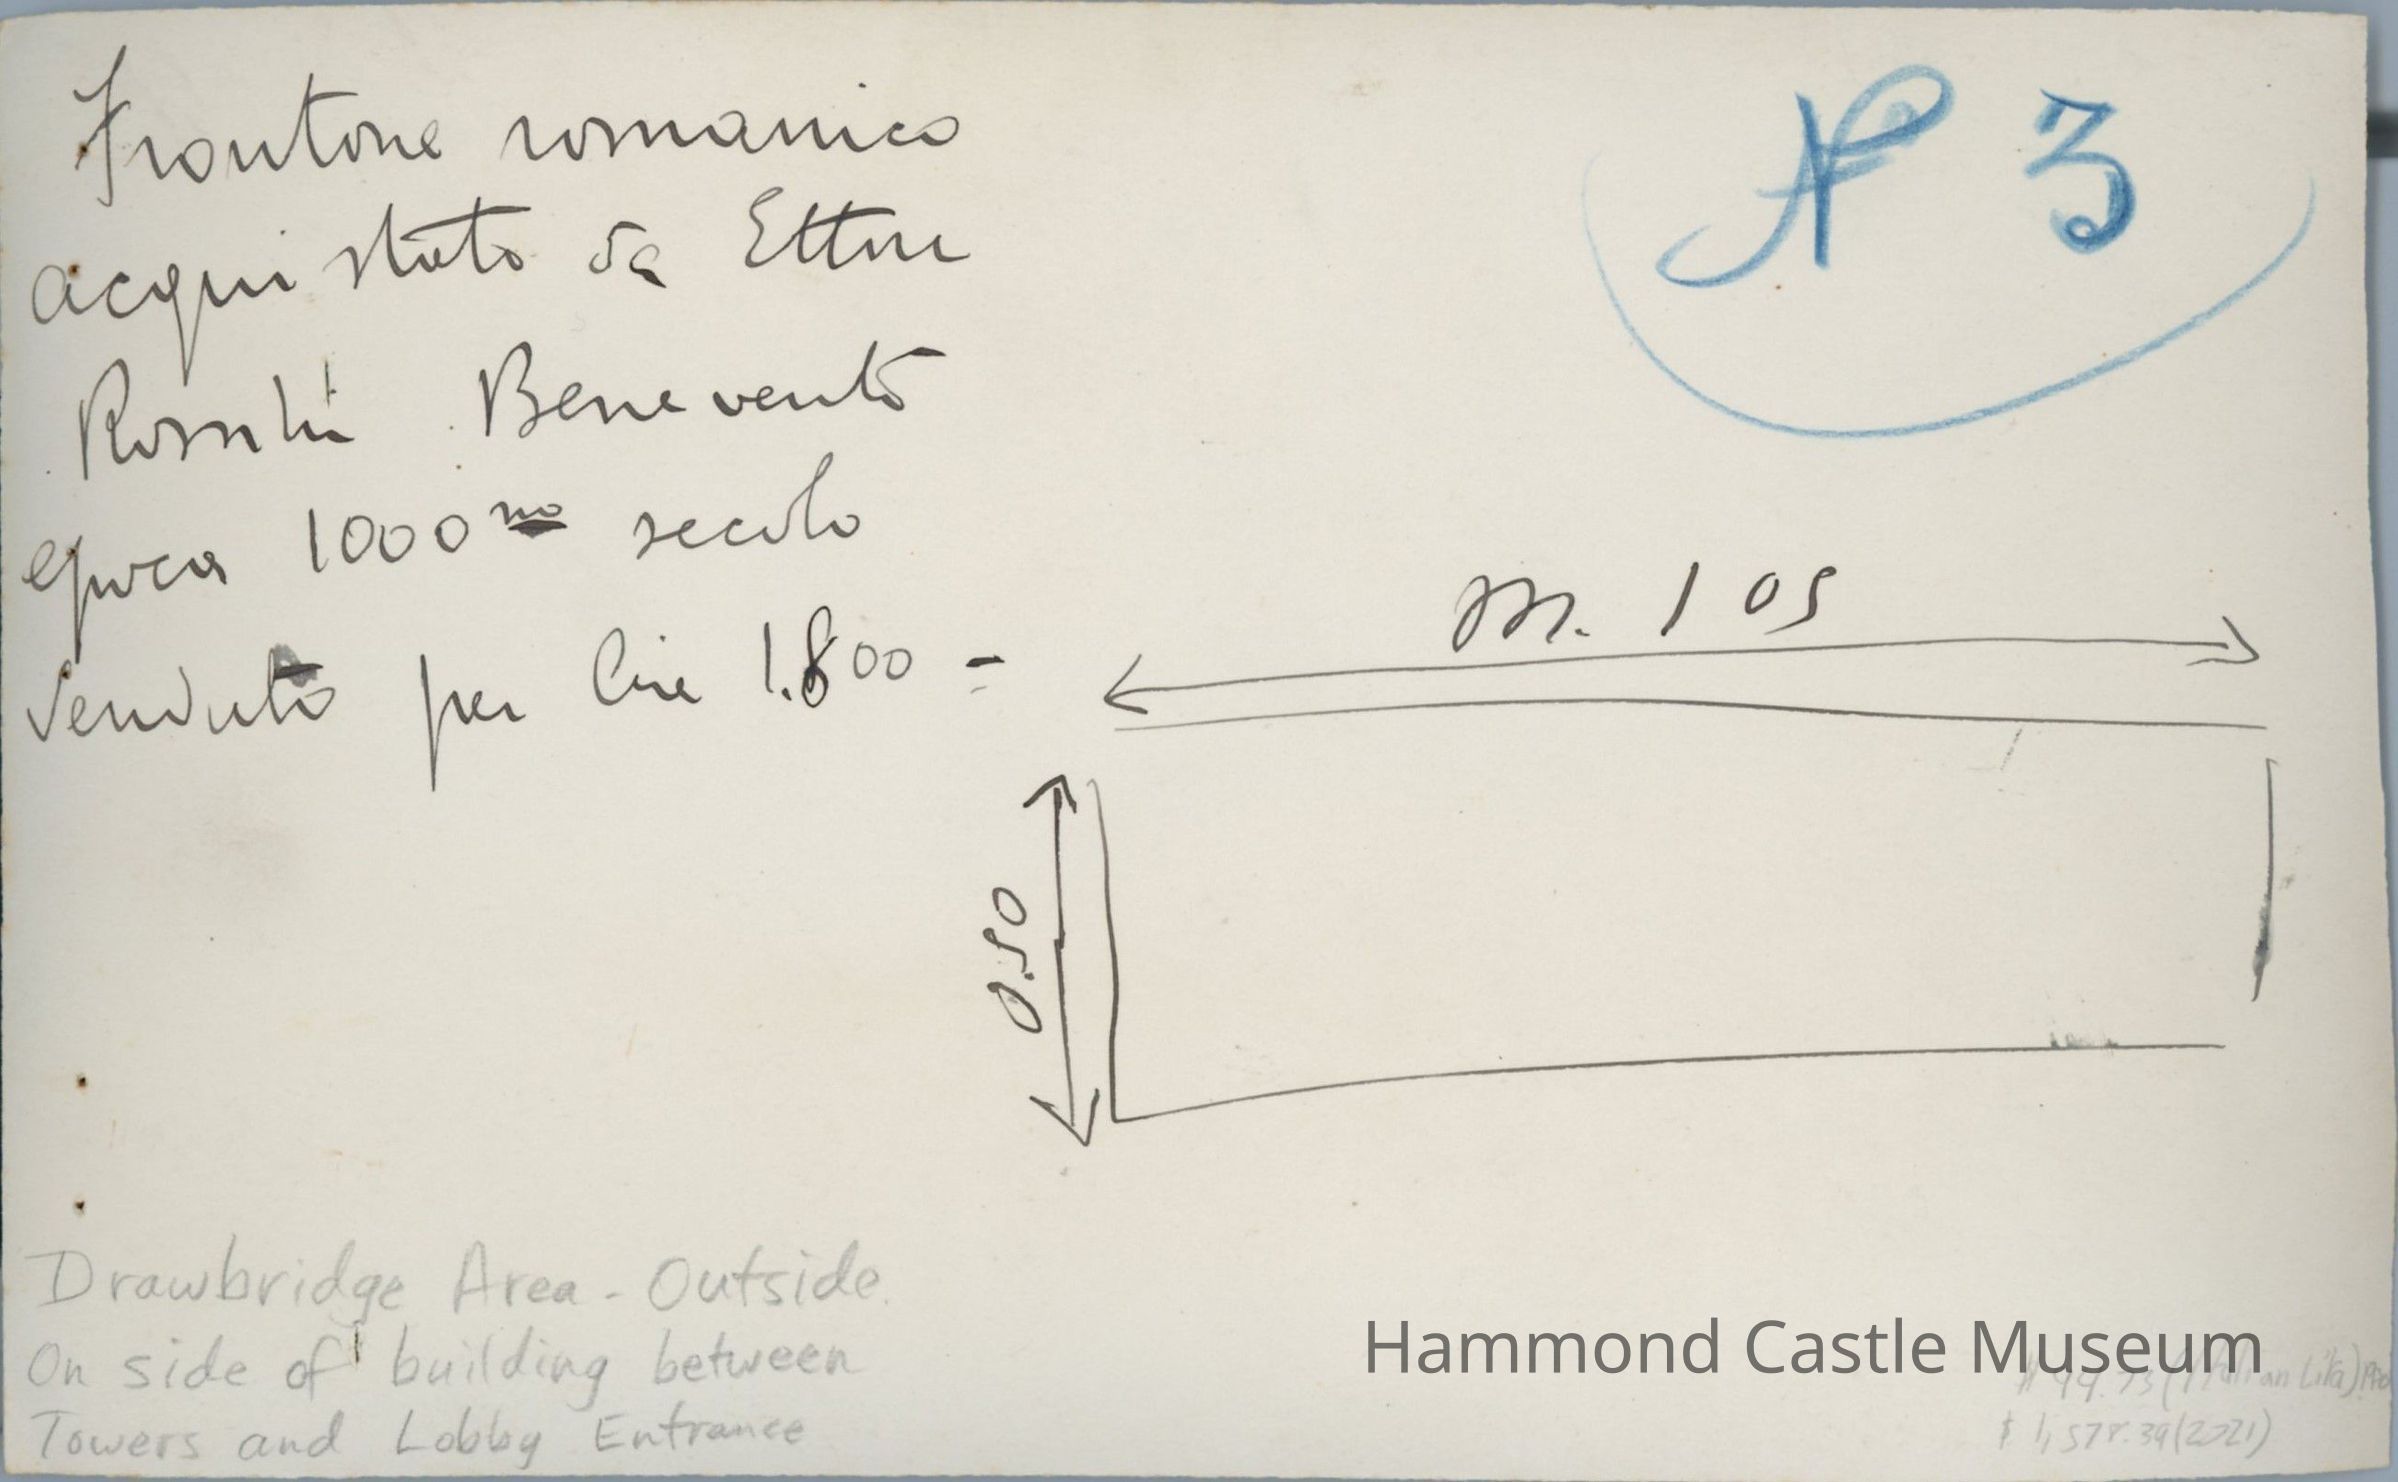 Frontone romanico
acquistato da Ettore
Benevento
epoca 1000mo secolo
venduto per lire 1.800 =
N 3
m. 1 05
0.50
Drawbridge Area - Outside.
On side of building between
Towers and Lobby Entrance
Hammond Castle Museum
(Italian Lira)
(2021)